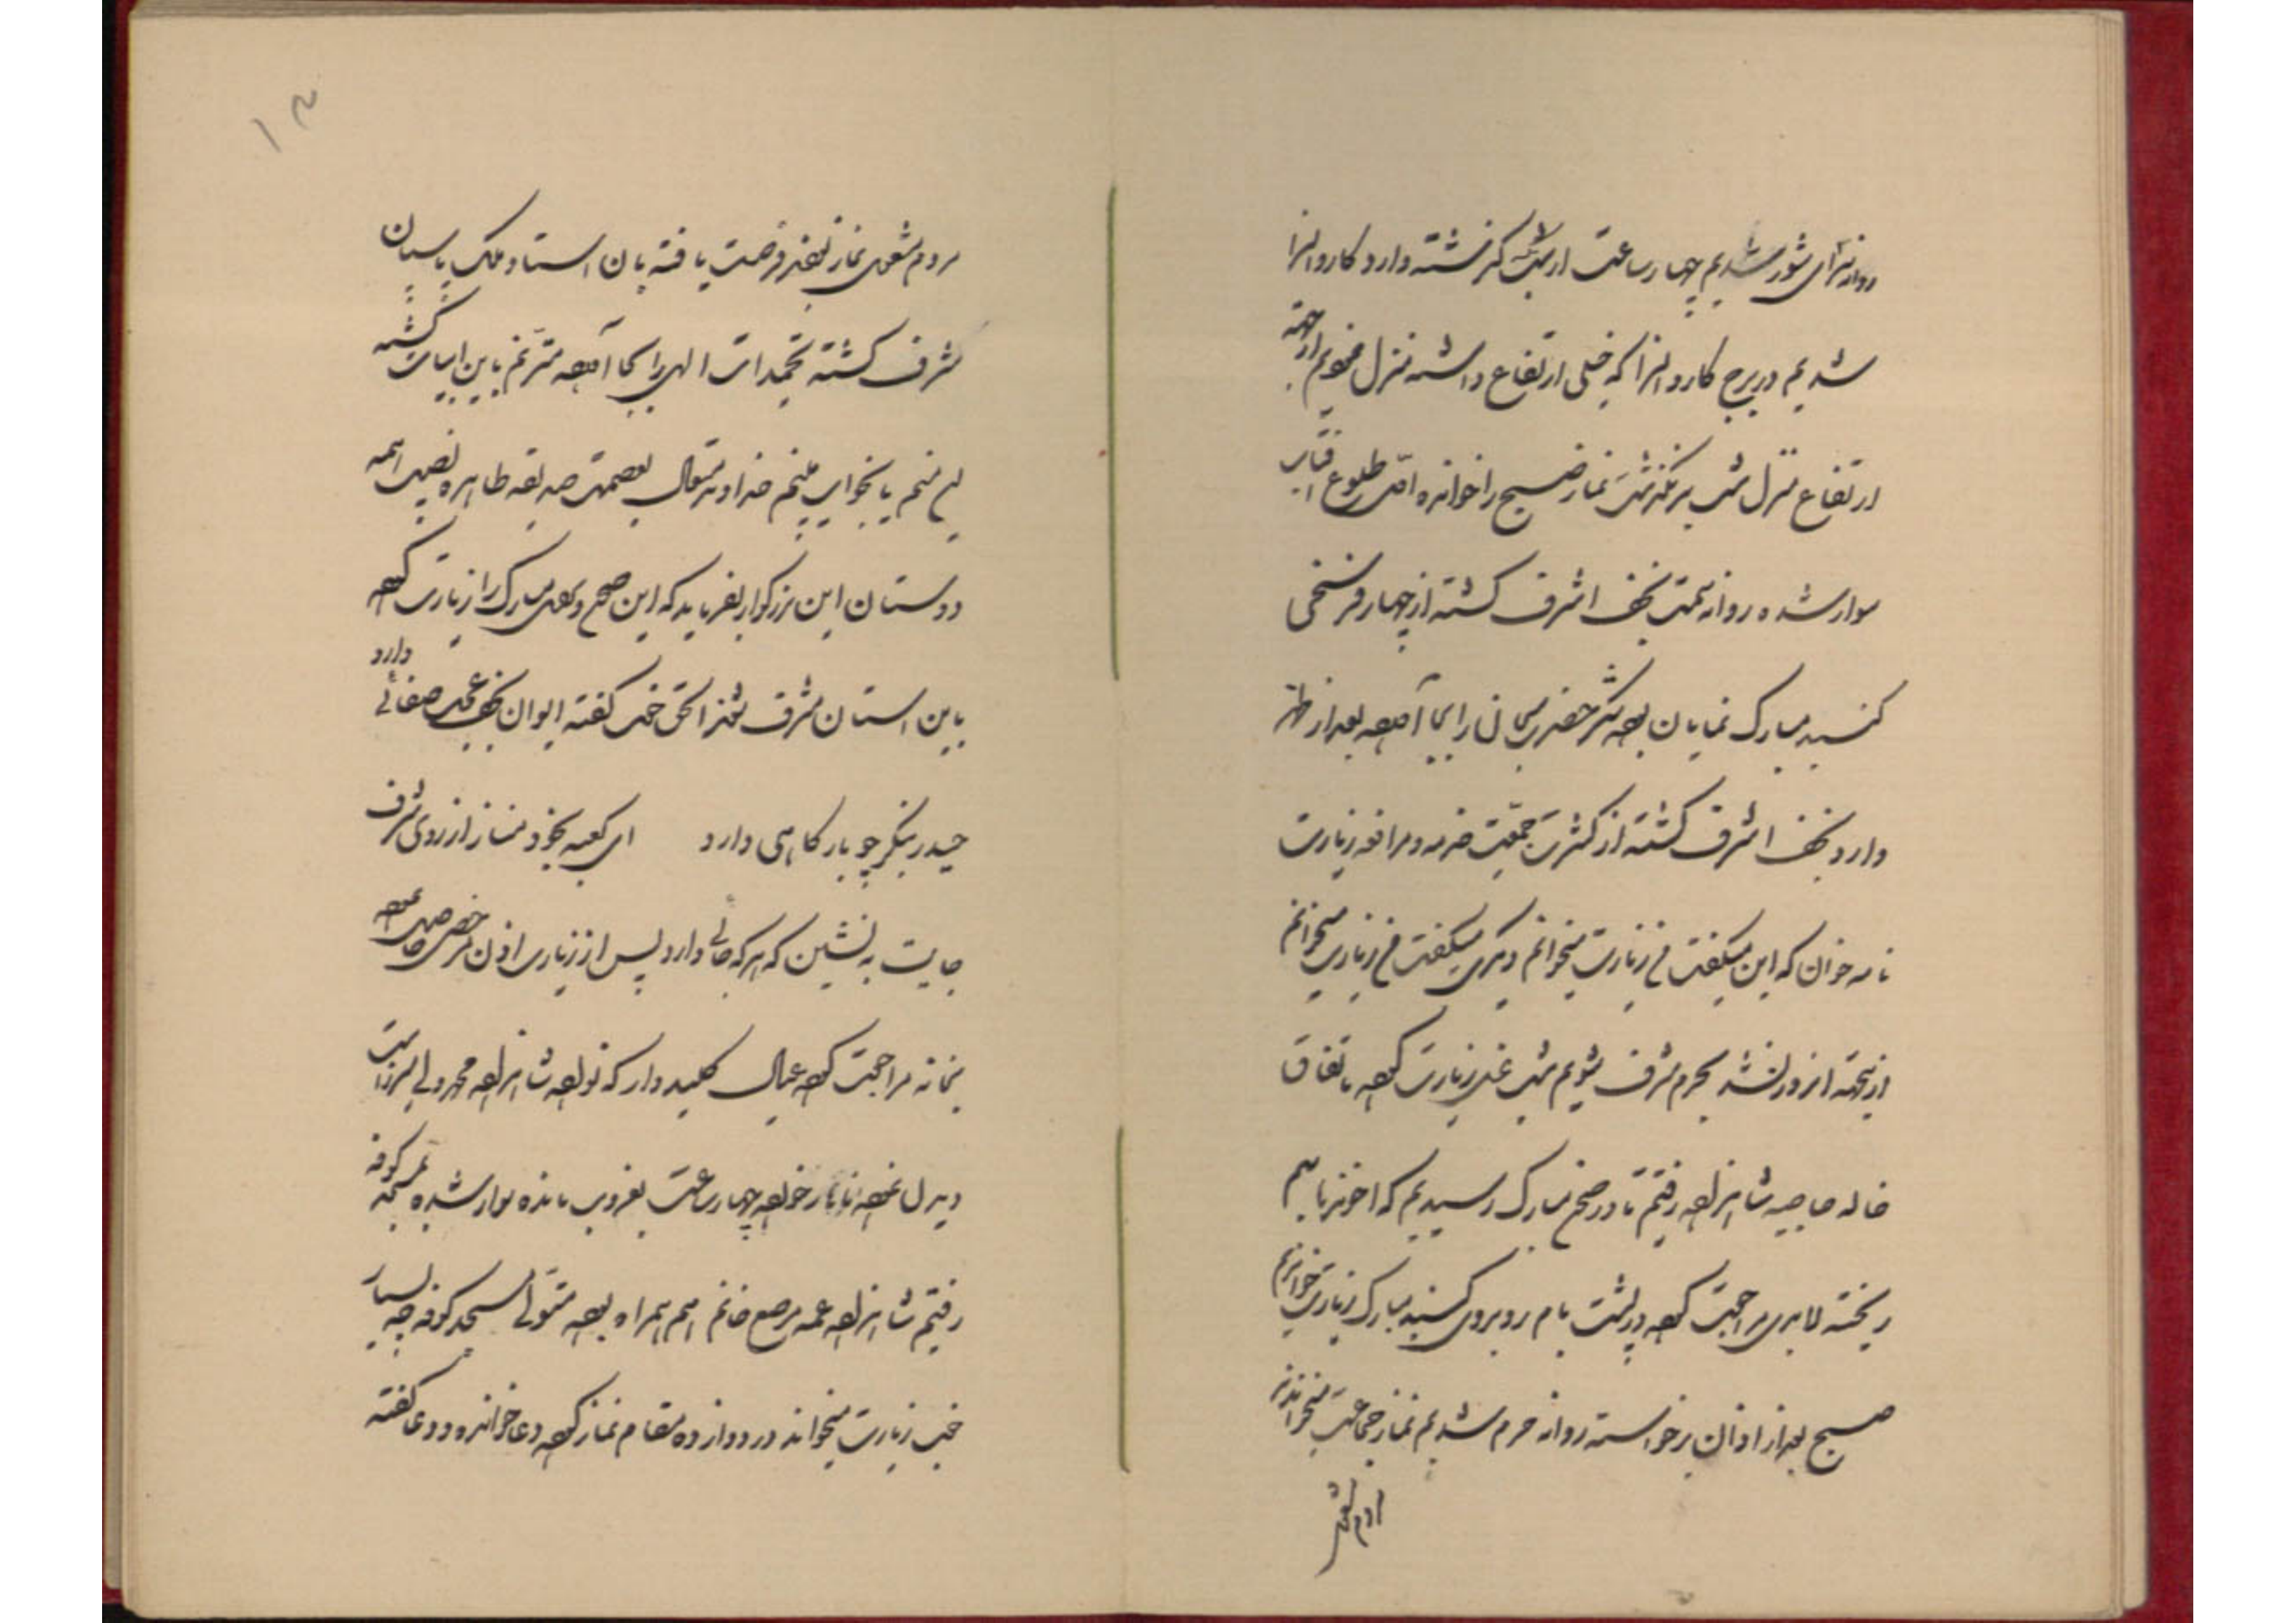 روانه شدیم چهار ساعت از شب گذشته وارد کاروانسرا
شدیم در برج کاروانسرا که خیلی ارتفاع داشته منزل نمودیم از جهة
ارتفاع منزل شب نماز صبح را خوانده اول طلوع افتاب
سوار شده روانه سمت نجف اشرف گشته از چهار فرسخی
گنبد مبارک نمایان بوده شکر حضرت سبحان را بجا آورده بعد از ظهر
وارد نجف اشرف گشته از کثرت جمعیت خدمه و زیارت
نامه خوان که این میگفت من زیارت میخوانم دیگری میگفت من زیارت میخوانم
از اینجهة انروز نشد بحرم مشرف شویم شب غسل زیارت کرده باتفاق
خاله حاجیه شاهزاده رفتیم تا در صحن مبارک رسیدیم که اخوندها بهم
ریخته لابدی مراجعت کرده در پشت بام روبروی گنبد مبارک زیارت خواندیم
صبح بعد از اذان برخواسته روانه حرم شدیم نماز جماعت میخواندند
مردم مشغول
۱۳
مردم مشغول نماز بودند فرصت یافته بان استان ملک پاسبان
مشرف گشته تحمیدات الهی را بجا آورده مترنم باین ابیات گشته
این منم یا بخواب میبینم خداوند متعال بعصمت صدیقه طاهره نصیب همه
دوستان این بزرگوار بفرماید که این صحن و مبارک را زیارت کرده
باین استان مشرف شوند الحق خوب گفته ایوان نجف عجب صفائی دارد
حیدر بنگر چو بارگاهی دارد ای کعبه بخود مناز از روی شرف
جایت بنشین که هر که جائی دارد پس از زیارت اذن مرخصی حاصل نموده
بخانه مراجعت کرده عیال کلیددار که نواده شاهزاده محمد ولی میرزاست
دیدن نموده ناهار خورده چهار ساعت بغروب مانده سوار شده بمسجد کوفه
رفتیم شاهزاده عمه مرصع خانم هم همراه بوده متولی مسجد کوفه چه بسیار
خوب زیارت میخواند در دوازده مقام نماز کرده دعا خوانده و دعا گفته